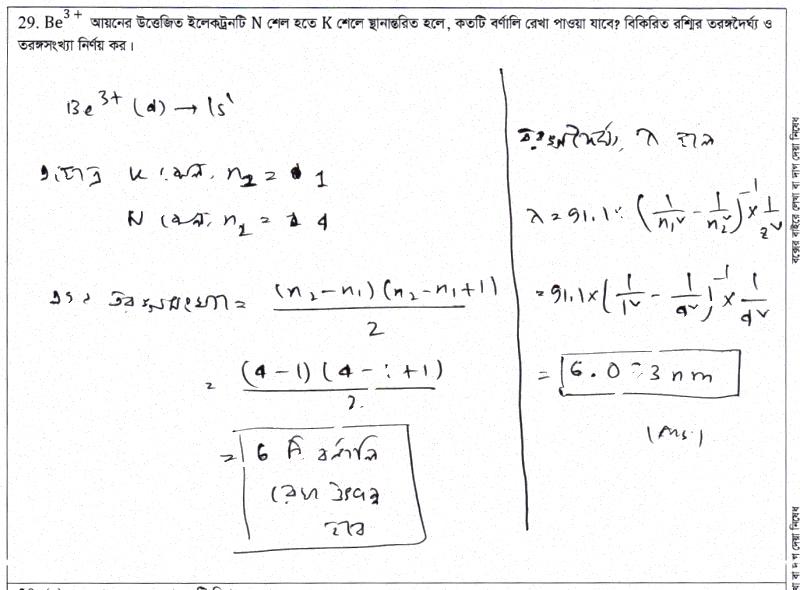 29. Be³⁺ আয়নের উত্তেজিত ইলেকট্রনটি N শেল হতে K শেলে স্থানান্তরিত হলে, কতটি বর্ণালি রেখা পাওয়া যাবে? বিকিরিত রশ্মির তরঙ্গদৈর্ঘ্য ও
তরঙ্গসংখ্যা নির্ণয় কর।
Be³⁺ (4) → 1s¹
K শেল, n₂ = 1
N শেল, n₂ = 4
তরঙ্গসংখ্যা = (n₂-n₁) (n₂-n₁+1) / 2
= (4-1) (4-1+1) / 2
= 6 টি বর্ণালি
রেখা উৎপন্ন
হবে
তরঙ্গদৈর্ঘ্য, λ হলে
λ = 91.1 × (1/n₁² - 1/n₂²)⁻¹ × 1/z²
= 91.1 × (1/1² - 1/4²)⁻¹ × 1/4²
= 6.073 nm
(Ans.)
বক্সের বাইরে লেখা বা দাগ দেয়া নিষেধ
খা বা দাগ দেয়া নিষেধ